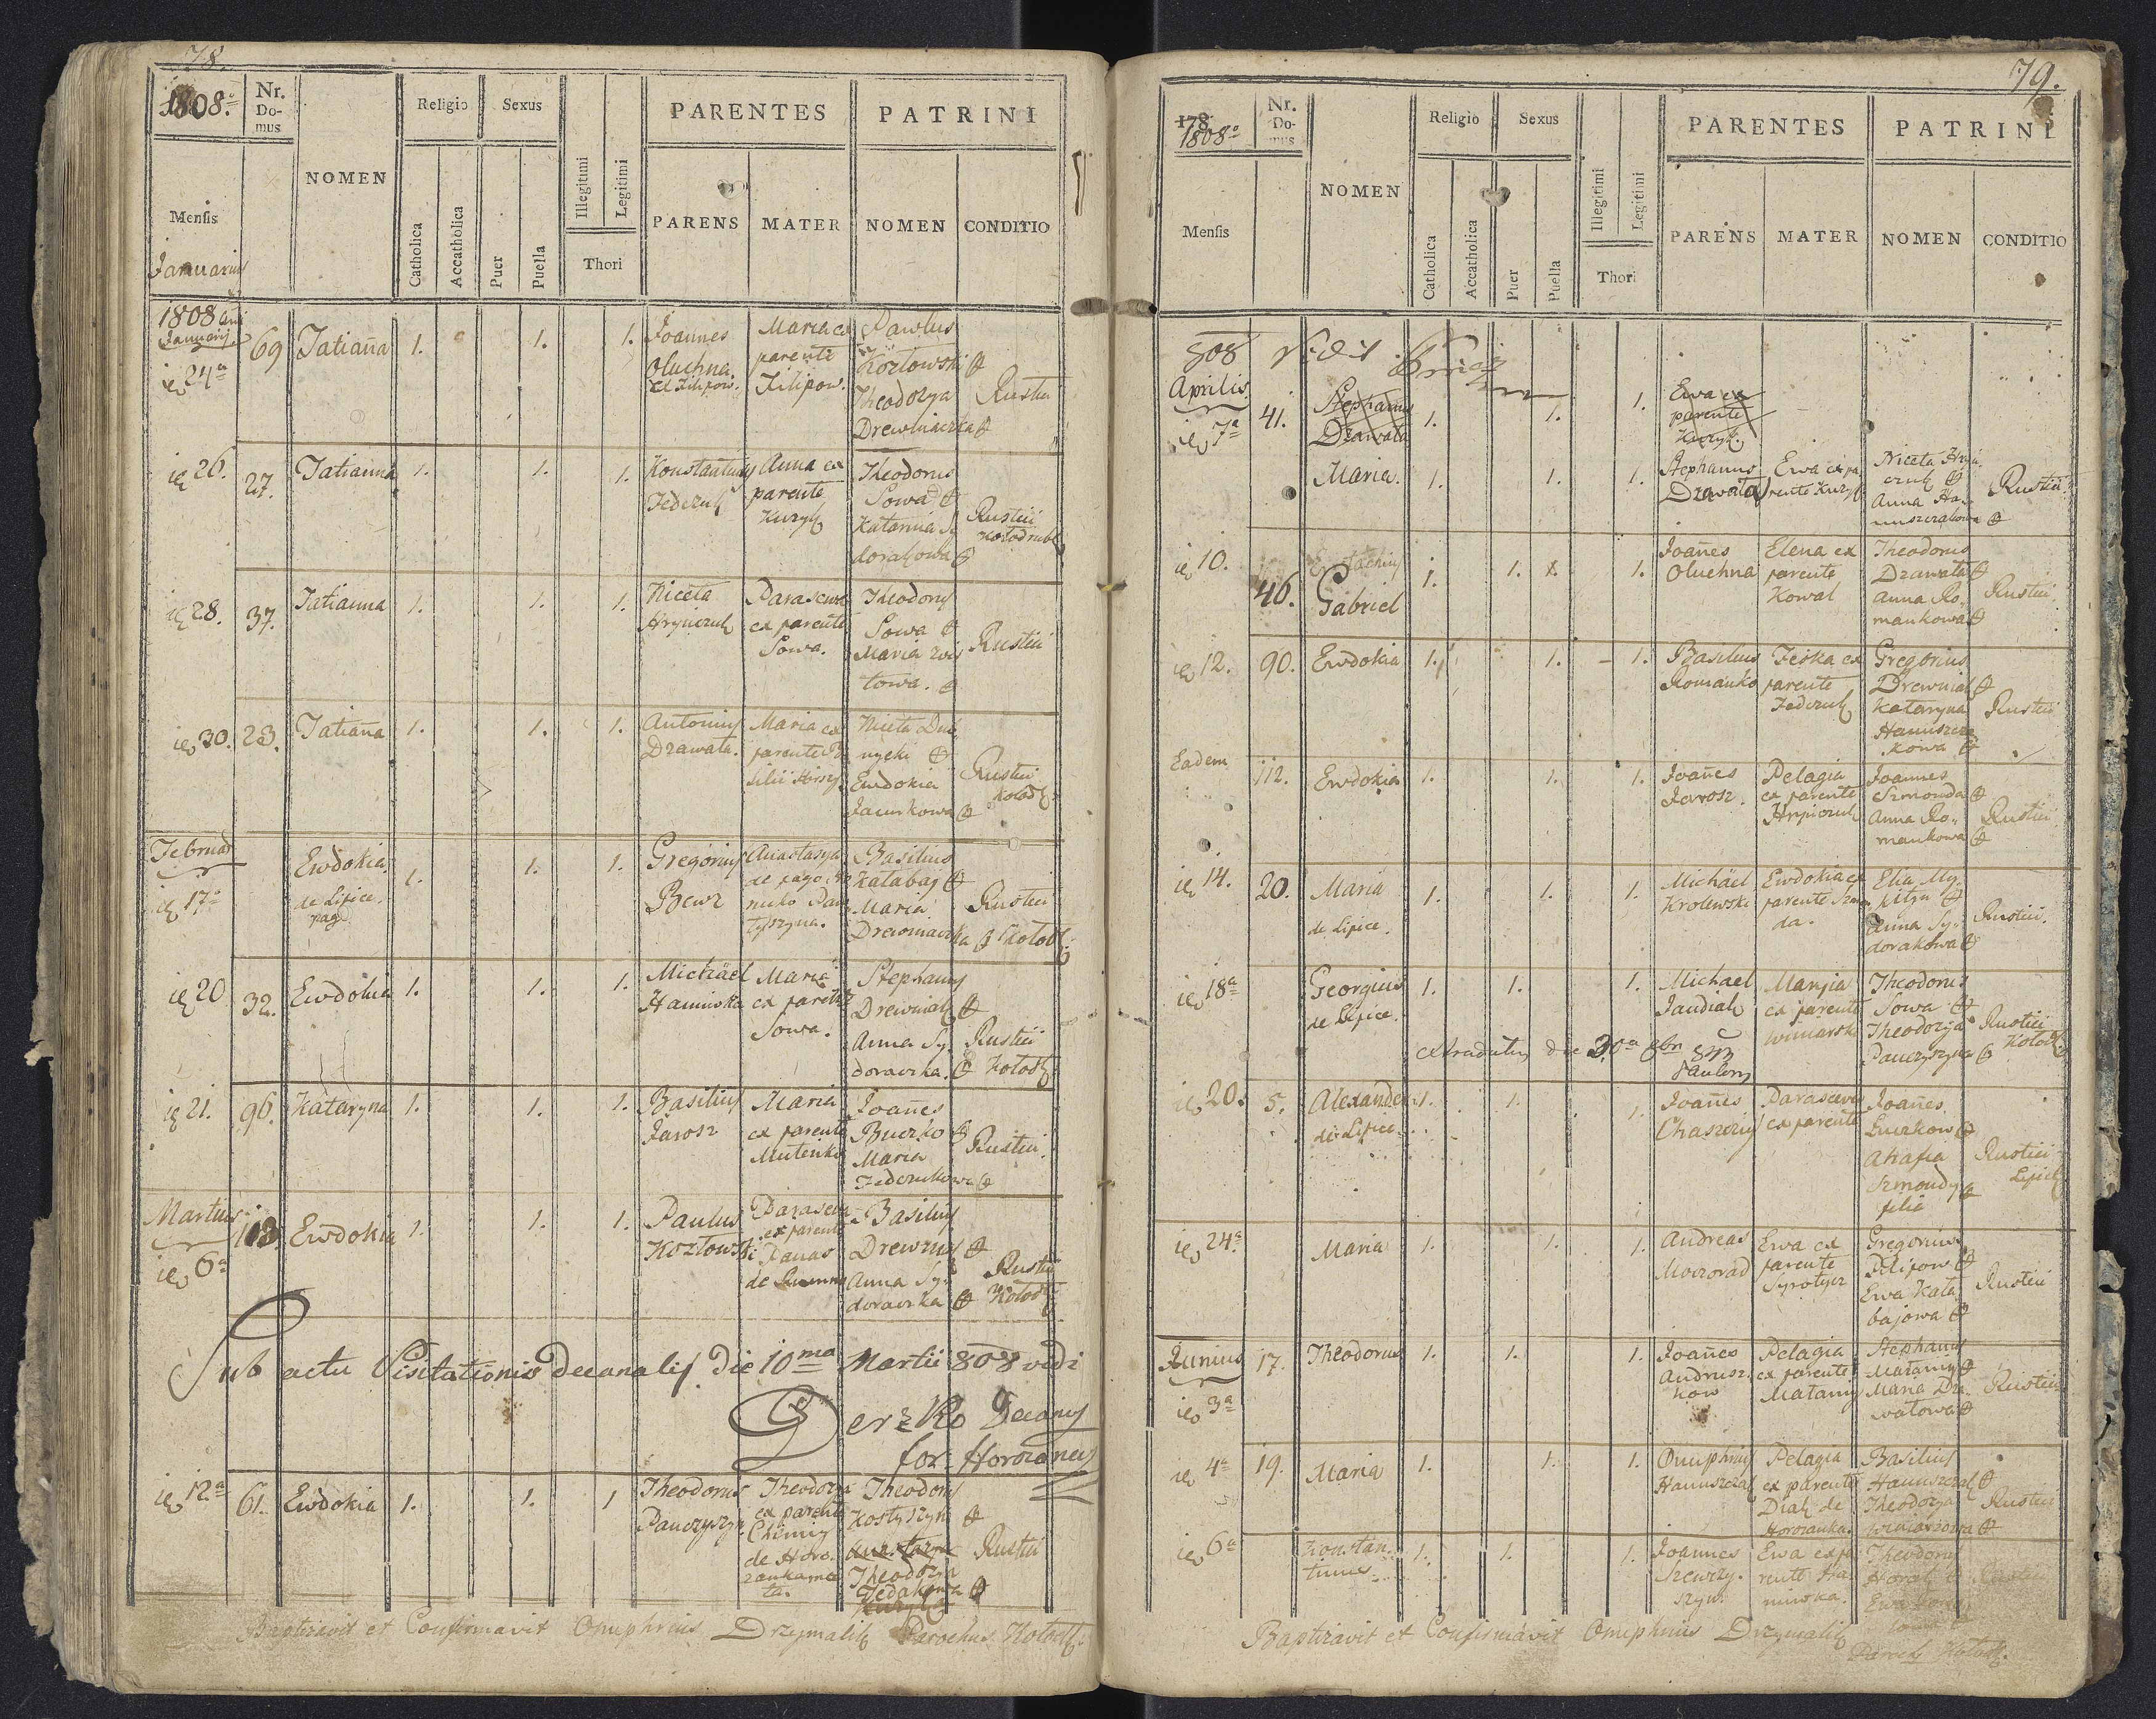 78.
1808.
Nr. Domus
NOMEN
Religio
Sexus
Illegitimi
Legitimi
Thori
PARENTES
PATRINI
Mensis
Catholica
Accatholica
Puer
Puella
PARENS
MATER
NOMEN
CONDITIO
Januarius
1808
Januarij
24a
69
Tatiana
1.
1.
1.
Joannes
Oluchna
ex Filipow.
Maria ex
parente
Filipow.
Pawlus
Kozłowski
Theodozya
Drewniaczka
Rustici
26.
27.
Tatianna
1.
1.
1.
Konstantinus
Fedczuk
Anna ex
parente
Kuryk
Theodorus
Sowa
Katarina Sy
dorakowa
Rustici
Kołodrub
28.
37.
Tatianna
1.
1.
1.
Niceta
Hryniczuk
Parascewa
ex parente
Sowa.
Theodorus
Sowa
Maria
towa.
Rustici
30.
23.
Tatiana
1.
1.
1.
Antonius
Drawata.
Maria ex
parente
Niceta Dub
nycki
Ewdokia
Jacurkowa
Rustici
Kołod
Februar
17a
Ewdokia
de Lipice
pago
1.
1.
1.
Gregorius
Bewz
Anastasya
de pago
Basilius
Katabaj
Maria
Drewniaczka
Rustici
Kołod
20
32.
Ewdokia
1.
1.
1.
Michael
Haminka
Maria
ex parente
Sowa.
Stephanus
Drewniak
Anna Sy
doraczka.
Rustici
Kołod
21.
96.
Kataryna
1.
1.
1.
Basilius
Jarosz
Maria
ex parente
Mutenko
Joanes
Buczko
Maria
Fedczukowa
Rustici
Martius
6a
Ewdokia
1.
1.
1.
Paulus
Kozłowski
Parascewa
ex parente
Panas
de
Basilius
Drewniak
Anna Sy
doraczka
Rustici
Kołod
Sub actu Visitationis Decanalis Die 10ma Martii 808 vidi
Decanus
for. Horozanen
12a
61.
Ewdokia
1.
1.
1
Theodorus
Panczyszyn
Theodozya
ex parente
de Horo
zanka
Theodorus
Kostyszyn
Theodozya
Rustici
Baptizavit et Confirmavit Onuphrius Drzymalik Parochus Kołod
79.
178
1808a
Nr. Domus
NOMEN
Religio
Sexus
Illegitimi
Legitimi
Thori
PARENTES
PATRINI
Mensis
Catholica
Accatholica
Puer
Puella
PARENS
MATER
NOMEN
CONDITIO
808 Vidit
Aprilis
7a
41.
Stephanus
Drawata
1.
1.
1.
Ewa ex
parente
Kuryk
Maria.
1.
1.
1.
Stephanus
Drawata
Ewa ex pa
rente Kuryk
Niceta Hryni
czuk
Anna Ha
nuszczakowa
Rustici
10.
46.
Gabriel
1.
1.
1.
1.
Joanes
Oluchna
Elena ex
parente
Kowal
Theodorus
Drawata
Anna Ro
mankowa
Rustici
12.
90.
Ewdokia
1.
1.
1.
Basilius
Romanko
Feska ex
parente
Fedczuk
Gregorius
Drewniak
Kataryna
Hanuszcza
kowa
Rustici
Eadem
112.
Ewdokia
1.
1.
1.
Joanes
Jarosz.
Pelagia
ex parente
Hryniczuk
Joannes
Szmonda
Anna Ro
mankowa
Rustici
14.
20.
Maria
de Lipice.
1.
1.
1.
Michael
Krolewski
Ewdokia ex
parente Szmon
da.
Elia
Anna Sy
dorakowa
Rustici.
18a
Georgius
de Lipice.
1.
1.
1.
Michael
Jandiak
Maryia
ex parente
Winiarski
Theodorus
Sowa
Theodozya
Panczyszyna
Rustici
Kołod
extradatus die 30a 8br
20.
5.
Alexander
de Lipice
1.
1.
1.
Joanes
Parascewa
ex parente
Joanes
Luczkow
Ahafia
Szmondy
filia
Rustici
Lipice
24a
Maria
1.
1.
1.
Andreas
Ewa ex
parente
Gregorius
Pilipow
Ewa Kata
bajowa
Rustici
Junius
3a
17.
Theodorus
1.
1.
1.
Joanes
Andrusz
kow
Pelagia
ex parente
Matanij
Stephanus
Matanij
Maria Dra
watowa
Rustici
4a
19.
Maria
1.
1.
1.
Onuphrius
Hanuszczak
Pelagia
ex parente
Diak de
Horozanka
Basilius
Hanuszczak
Theodozya
Winiarzowa
Rustici
6a
Konstan
tinus
1.
1.
1.
Joannes
Szewczy
szyn
Ewa ex pa
rente Ha
minka.
Theodorus
Ewa
Rustici
Baptizavit et Confirmavit Onuphrius Drzymalik
Paroch Kołod.